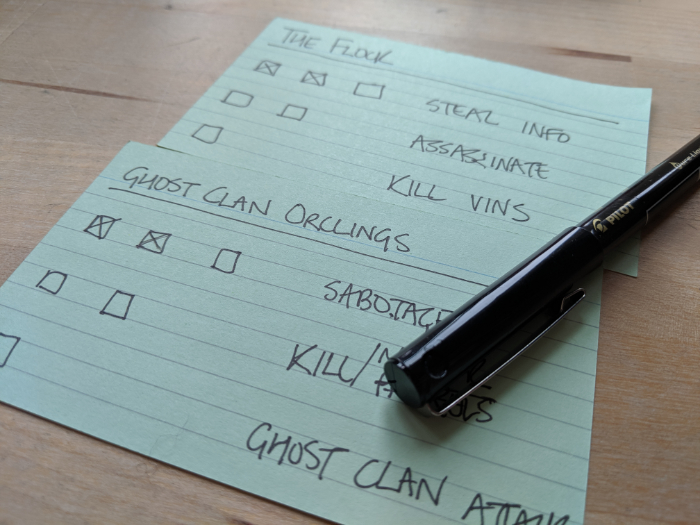 THE FLOCK
STEAL INFO
ASSASSINATE
KILL VINS
GHOST CLAN ORCLINGS
SABOTAGE
KILL/
GHOST CLAN ATTACK
PILOT